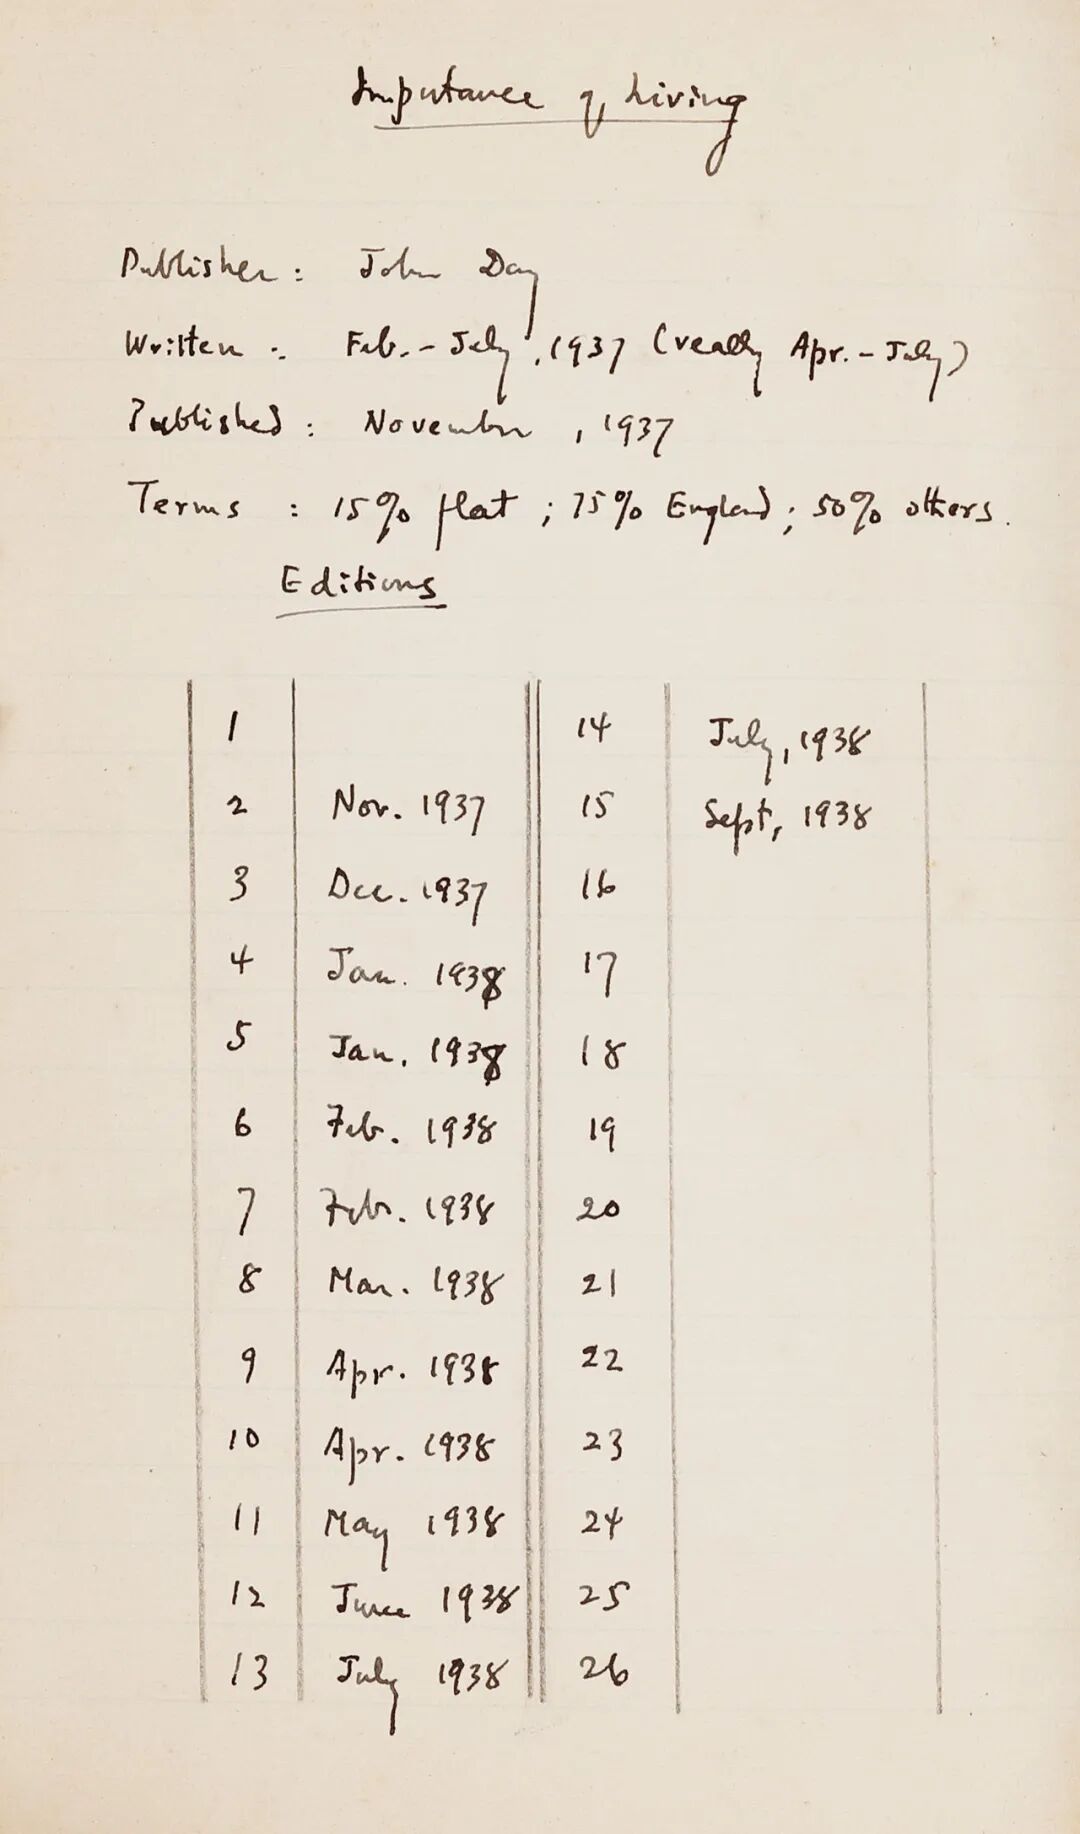 Importance of Living
Publisher : John Day
Written : Feb. - July, 1937 (really Apr. - July)
Published : November, 1937
Terms : 15% flat ; 75% England ; 50% others.
Editions
1
2 Nov. 1937
3 Dec. 1937
4 Jan. 1938
5 Jan. 1938
6 Feb. 1938
7 Feb. 1938
8 Mar. 1938
9 Apr. 1938
10 Apr. 1938
11 May 1938
12 June 1938
13 July 1938
14 July, 1938
15 Sept, 1938
16
17
18
19
20
21
22
23
24
25
26